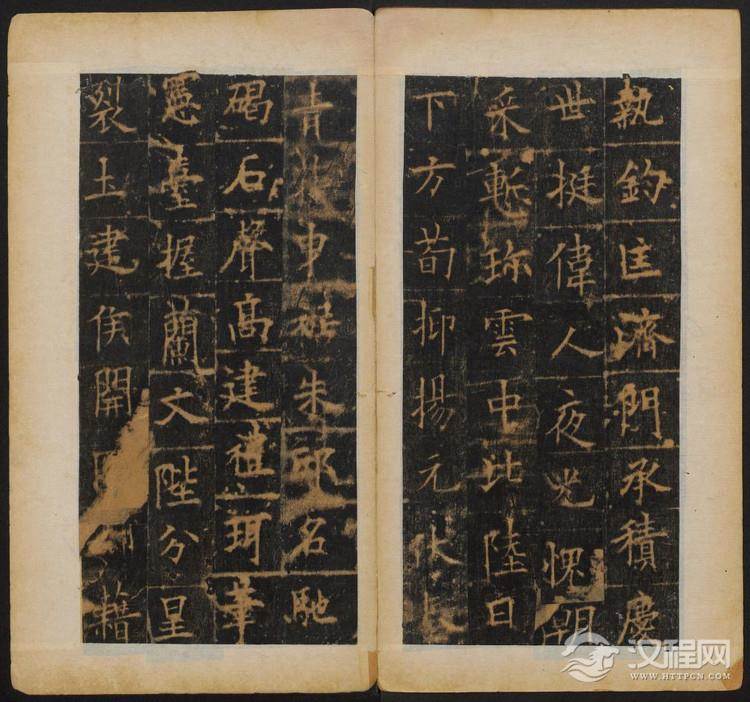 執鈞匡濟門承積慶
世挺偉人夜光愧
采慙珎雲中比陸日
下方荀抑揚元
青申朱邸名馳
碣石聲高建禮珥筆
憲臺握蘭文陛分
裂土建侯開籍
汉程网
WWW.HTTPCN.COM